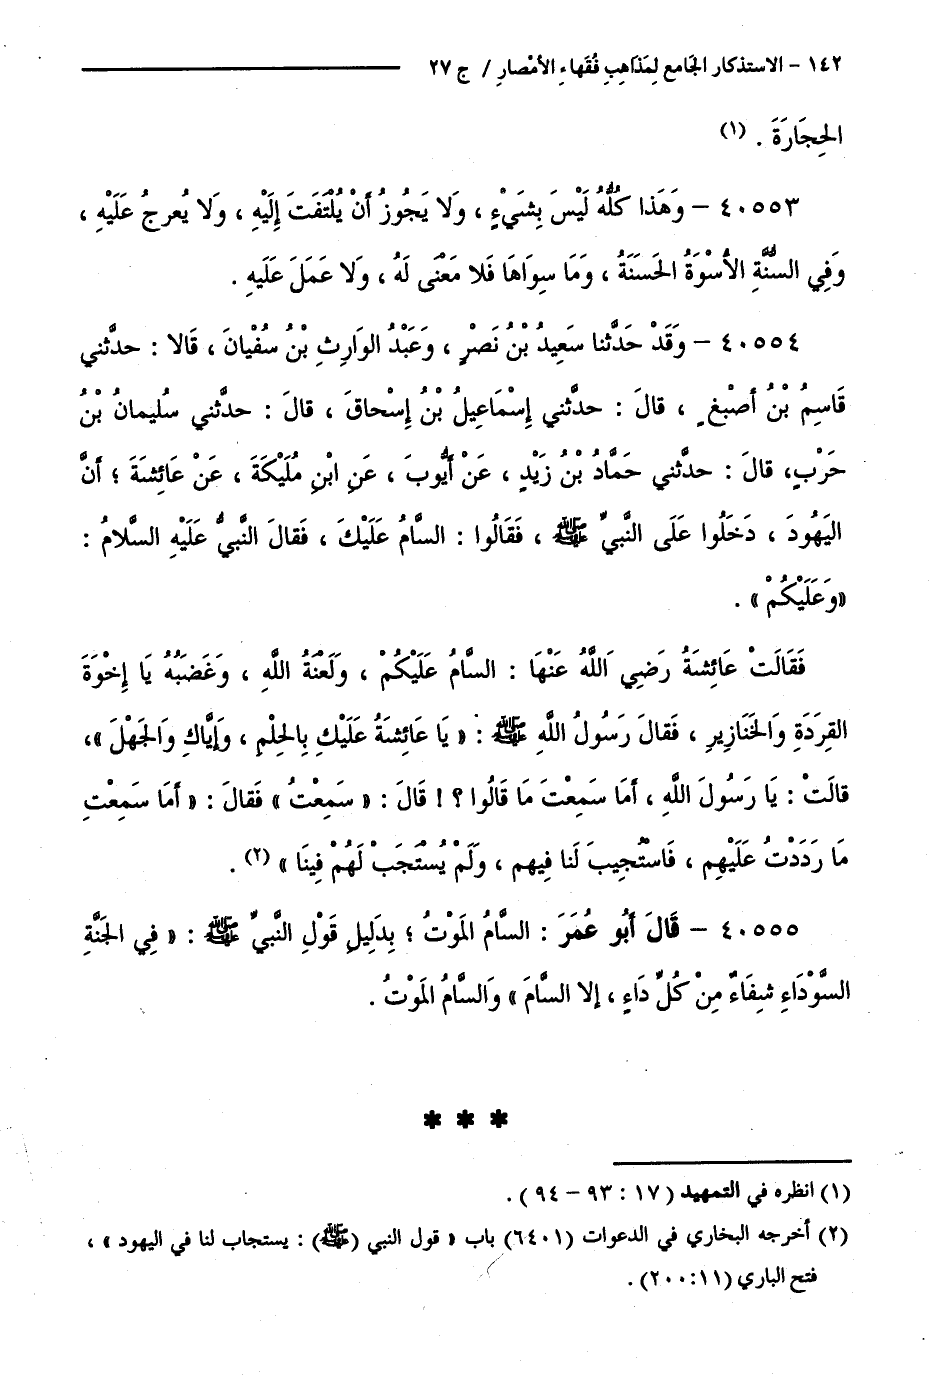 ١٤٢ - الاستذكار الجامع لِمَذَاهِبِ فُقَهَاءِ الأمْصارِ / ج ٢٧
الحِجَارَةَ . (١)
٤٠٥٥٣ - وَهَذَا كُلُّهُ لَيْسَ بِشَيْءٍ ، وَلا يَجُوزُ أنْ يُلْتَفَتَ إِلَيْهِ ، وَلا يُعرجُ عَلَيْهِ ،
وَفِي السُّنَّةِ الأُسْوَةُ الحَسَنَةُ ، وَمَا سِوَاهَا فَلا مَعْنَى لَهُ ، وَلا عَمَلَ عَلَيهِ .
٤٠٥٥٤ - وَقَدْ حَدَّثنا سَعِيدُ بْنُ نَصْرٍ ، وَعَبْدُ الوَارِثِ بْنُ سُفْيانَ ، قَالا : حدَّثني
قَاسِمُ بْنُ أصْبغٍ ، قالَ : حدَّثني إِسْمَاعِيلُ بْنُ إِسْحاقَ ، قالَ : حدَّثني سُليمانُ بْنُ
حَرْبٍ، قالَ : حدَّثني حَمَّادُ بْنُ زَيْدٍ ، عَنْ أَيُّوبَ ، عَنِ ابْنِ مُلَيْكَةَ ، عَنْ عَائِشَةَ ؛ أنَّ
اليَهُودَ ، دَخَلُوا عَلَى النَّبيِّ ﷺ ، فَقَالُوا : السَّامُ عَلَيْكَ ، فَقالَ النَّبيُّ عَلَيْهِ السَّلامُ :
«وَعَلَيْكُمْ» .
فَقَالَتْ عَائِشَةُ رَضِي اَللَّهُ عَنْهَا : السَّامُ عَلَيْكُمْ ، وَلَعْنَةُ اللَّهِ ، وَغَضَبُهُ يَا إِخْوَةَ
القِرَدَةِ وَالخَنَازِيرِ ، فَقالَ رَسُولُ اللَّهِ ﷺ : « يَا عَائِشَةُ عَلَيْكِ بِالحِلْمِ ، وَإِيَّاكِ وَالجَهْلَ »،
قالَتْ : يَا رَسُولَ اللَّهِ ، أمَا سَمِعْتَ مَا قَالُوا ؟ ! قَالَ : « سَمِعْتُ » فَقالَ : « أمَا سَمِعْتِ
مَا رَدَدْتُ عَلَيْهِم ، فَاسْتُجِيبَ لَنا فِيهم ، وَلَمْ يُسْتَجَبْ لَهُمْ فِينَا » (٢) .
٤٠٥٥٥ - قَالَ أَبُو عُمَرَ : السَّامُ المَوْتُ ؛ بِدَلِيلِ قَوْلِ النَّبيِّ ﷺ : « فِي الحَبَّةِ
السَّوْدَاءِ شِفَاءٌ مِنْ كُلِّ دَاءٍ ، إلا السَّامَ » وَالسَّامُ المَوْتُ .
* * *
(١) انظره في التمهيد ( ١٧ : ٩٣ - ٩٤ ) .
(٢) أخرجه البخاري في الدعوات (٦٤٠١) باب « قول النبي (ﷺ) : يستجاب لنا في اليهود » ،
فتح الباري (١١:٢٠٠) .